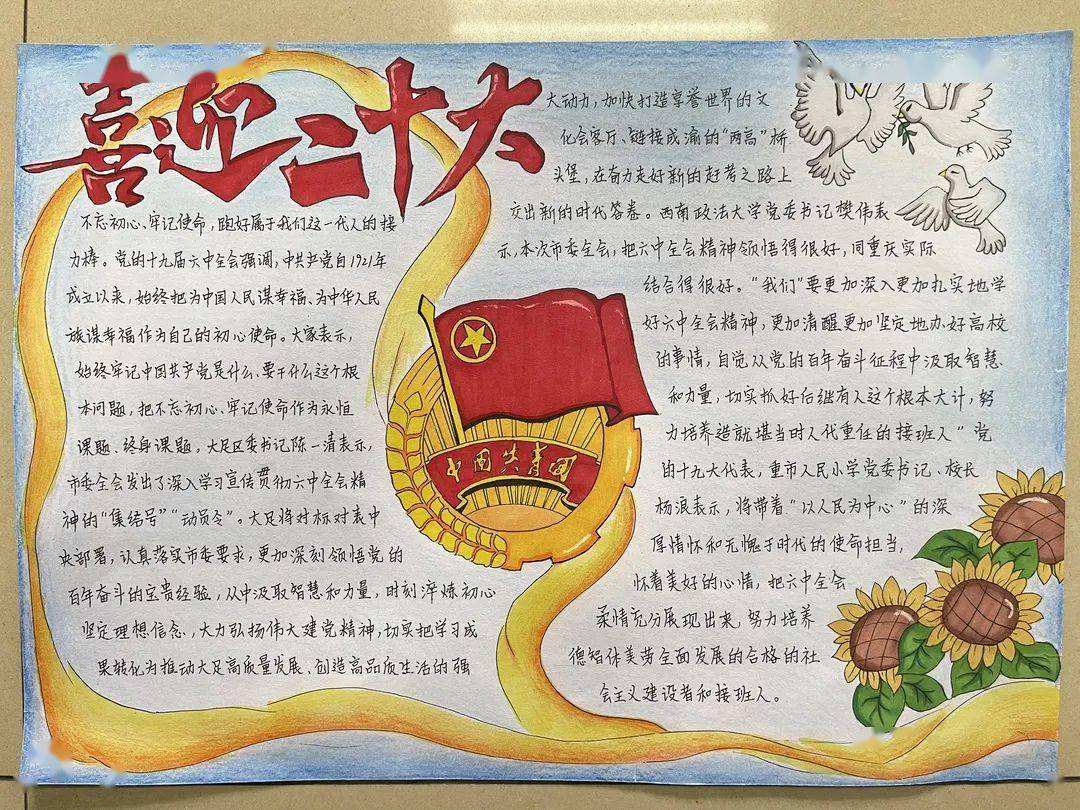 喜迎二十大
不忘初心、牢记使命,跑好属于我们这一代人的接
力棒。党的十九届六中全会强调,中共产党自1921年
成立以来,始终把为中国人民谋幸福、为中华人民
族谋幸福作为自己的初心使命。大家表示,
始终牢记中国共产党是什么、要干什么这个根
本问题,把不忘初心、牢记使命作为永恒
课题、终身课题,大足区委书记陈一清表示,
市委全会发出了深入学习宣传贯彻六中全会精
神的“集结号”“动员令”。大足将对标对表中
央部署,认真落实市委要求,更加深刻领悟党的
百年奋斗的宝贵经验,从中汲取智慧和力量,时刻淬炼初心
坚定理想信念,大力弘扬伟大建党精神,切实把学习成
果转化为推动大足高质量发展、创造高品质生活的强
大动力,加快打造享誉世界的文
化会客厅、链接成渝的“两高”桥
头堡,在奋力走好新的赶考之路上
交出新的时代答卷。西南政法大学党委书记樊伟表
示,本次市委全会,把六中全会精神领悟得很好,同重庆实际
结合得很好。“我们”要更加深入更加扎实地学
好六中全会精神,更加清醒更加坚定地办好高校
的事情,自觉从党的百年奋斗征程中汲取智慧
和力量,切实抓好后继有人这个根本大计,努
力培养造就堪当时人代重任的接班人”党
的十九大代表,重市人民小学党委书记、校长
杨浪表示,将带着“以人民为中心”的深
厚情怀和无愧于时代的使命担当,
怀着美好的心情,把六中全会
柔情充分展现出来,努力培养
德智体美劳全面发展的合格的社
会主义建设者和接班人。
中国共青团